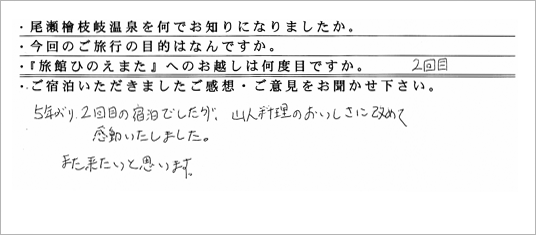 ・尾瀬檜枝岐温泉を何でお知りになりましたか。
・今回のご旅行の目的はなんですか。
・『旅館ひのえまた』へのお越しは何度目ですか。 2回目
・ご宿泊いただきましたご感想・ご意見をお聞かせ下さい。
5年ぶり、2回目の宿泊でしたが、山人料理のおいしさに改めて
感動いたしました。
また来たいと思います。